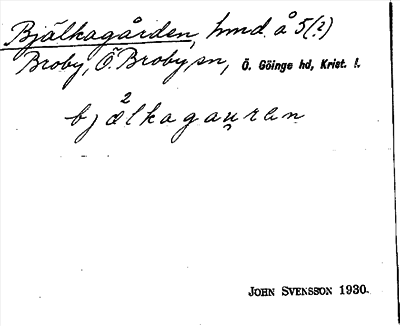 Bjälkagården, hmd å 5(?)
Broby, Ö. Broby sn, Ö. Göinge hd, Krist. l.
bjälkagauran
JOHN SVENSSON 1930.